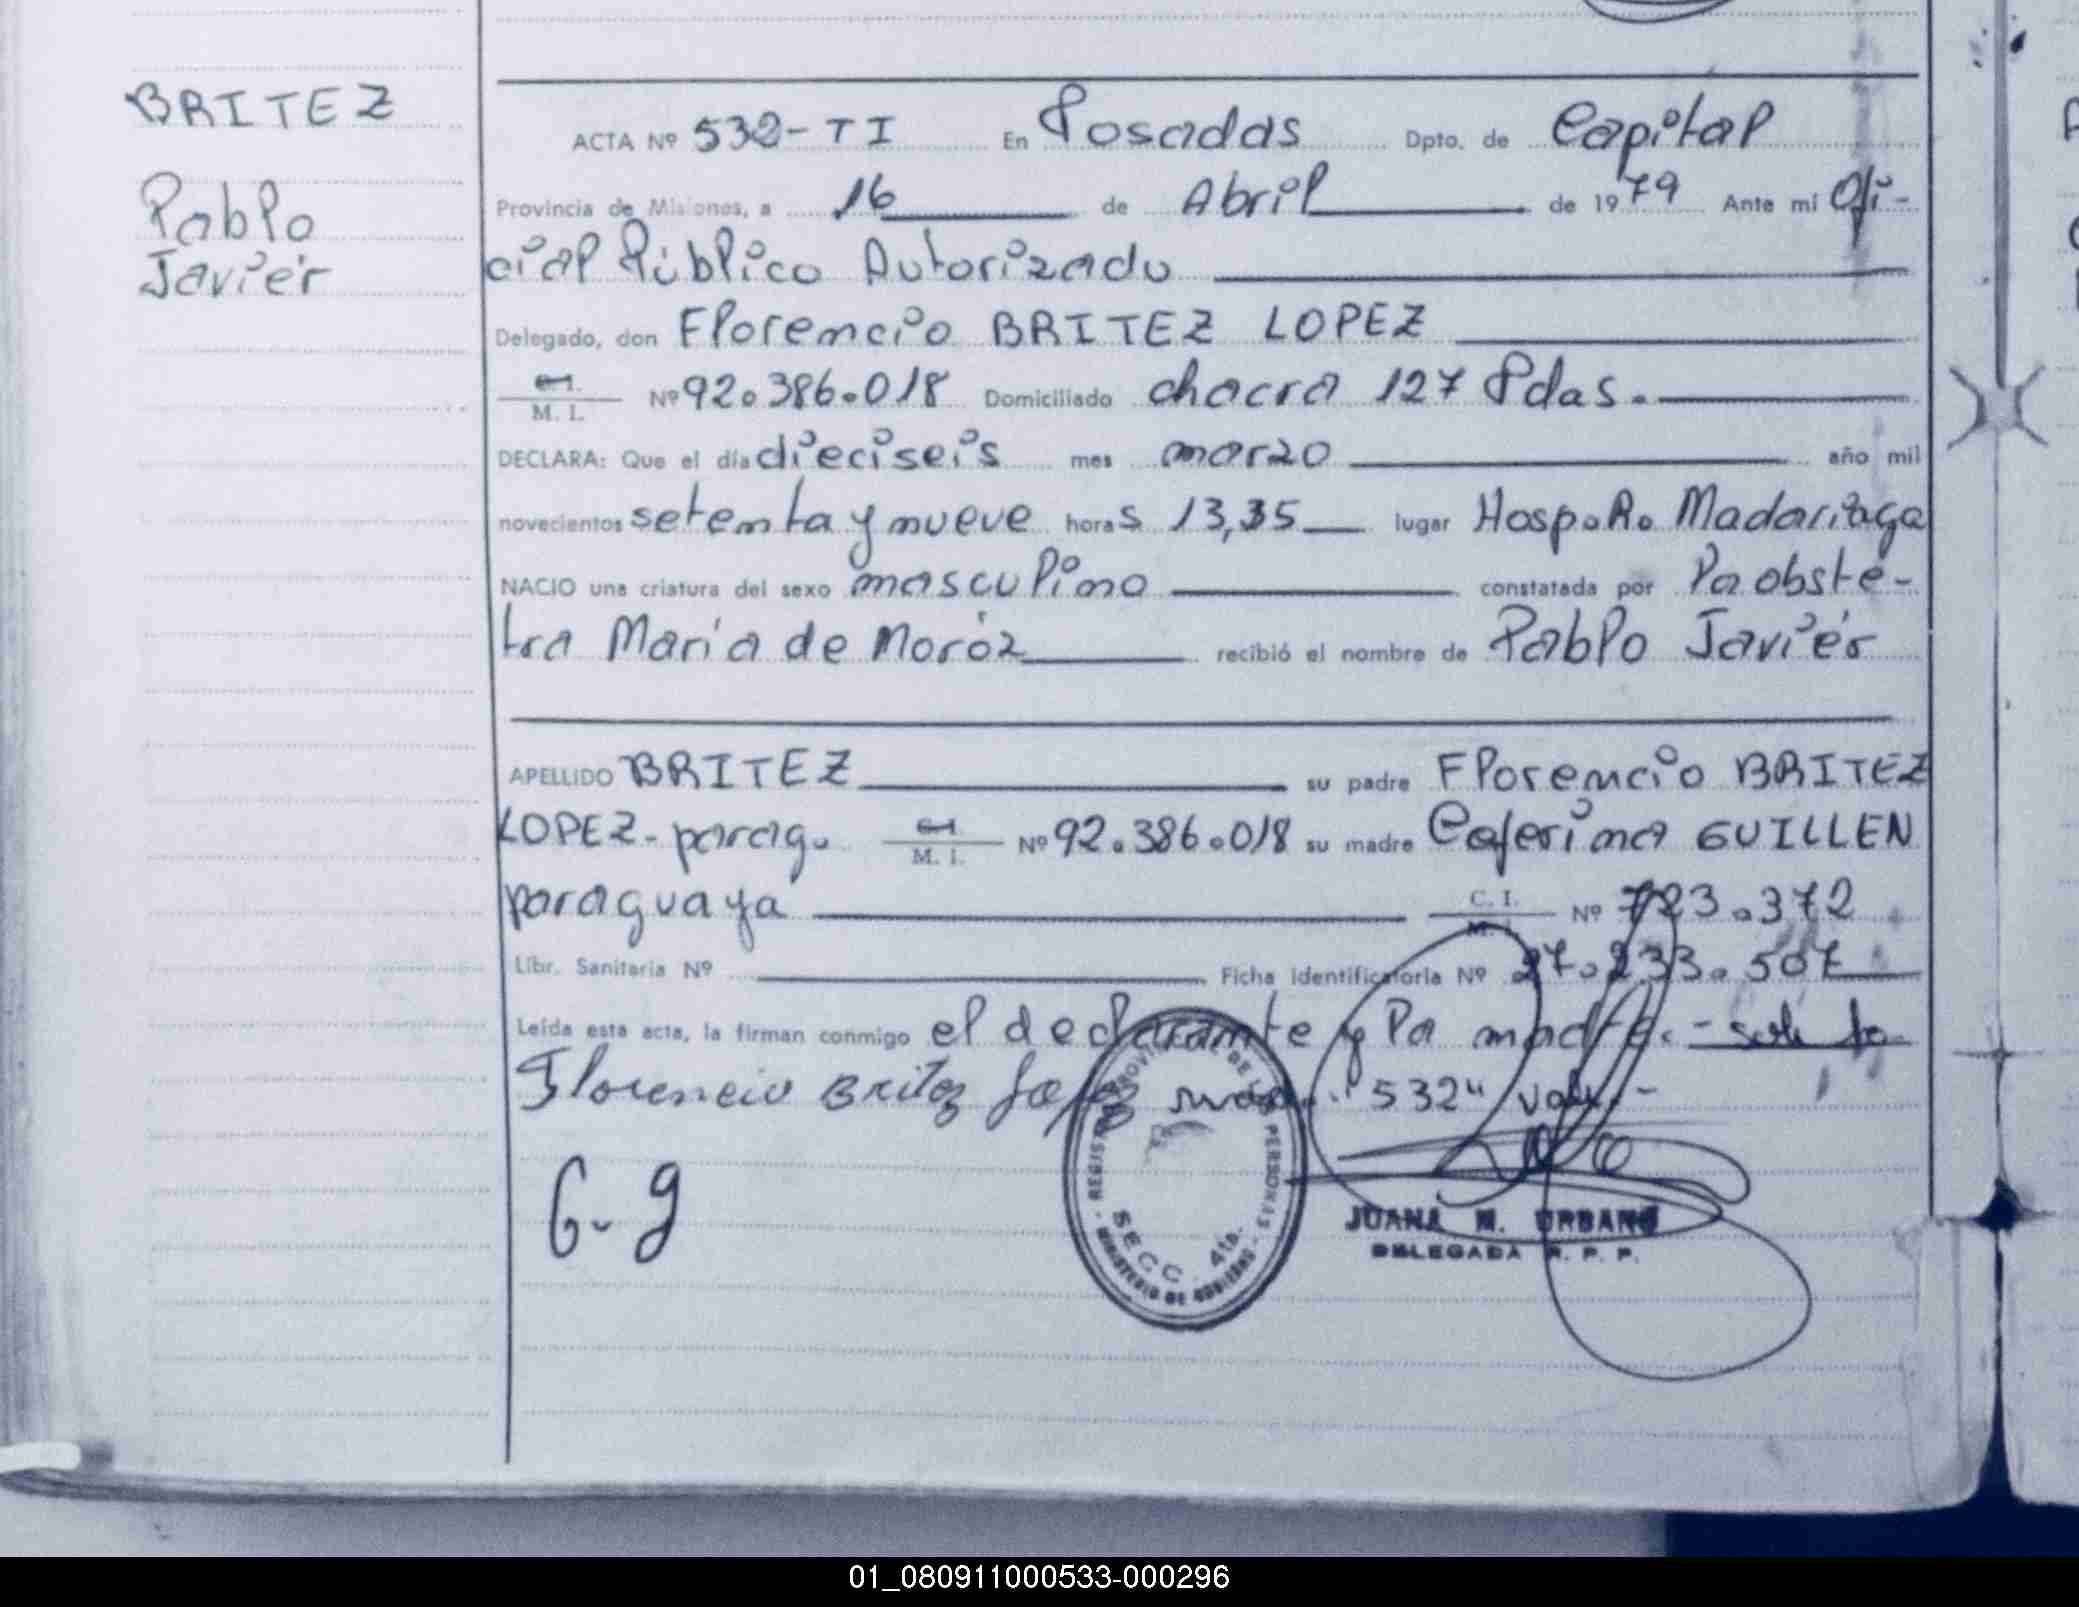 BRITEZ
Pablo
Javier
ACTA Nº 532-TI En Posadas Dpto. de Capital
Provincia de Misiones, a 16 de Abril de 1979 Ante mí Ofi-
cial Público Autorizado
Delegado, don Florencio BRITEZ LOPEZ
C.I. M. I. Nº 92.386.018 Domiciliado chacra 127 Pdas.
DECLARA: Que el día dieciseis mes marzo año mil
novecientos setenta y nueve horas 13,35 lugar Hosp. R. Madariaga
NACIO una criatura del sexo masculino constatada por la obsté-
tra María de Moróz recibió el nombre de Pablo Javiér
APELLIDO BRITEZ su padre Florencio BRITEZ
LOPEZ- parag. C.I. M. I. Nº 92.386.018 su madre Ceferina GUILLEN
paraguaya C. I. M. I. Nº 723.372
Libr. Sanitaria Nº Ficha Identificatoria Nº 27.233.507
Leída esta acta, la firman conmigo el declarante y la madre.-
Florencio Britez "532"
G. g
REGISTRO PROVINCIAL DE LAS PERSONAS
SECC. 4ta.
MINISTERIO DE GOBIERNO
JUANA N. URBANO
DELEGADA R. P. P.
01_080911000533-000296